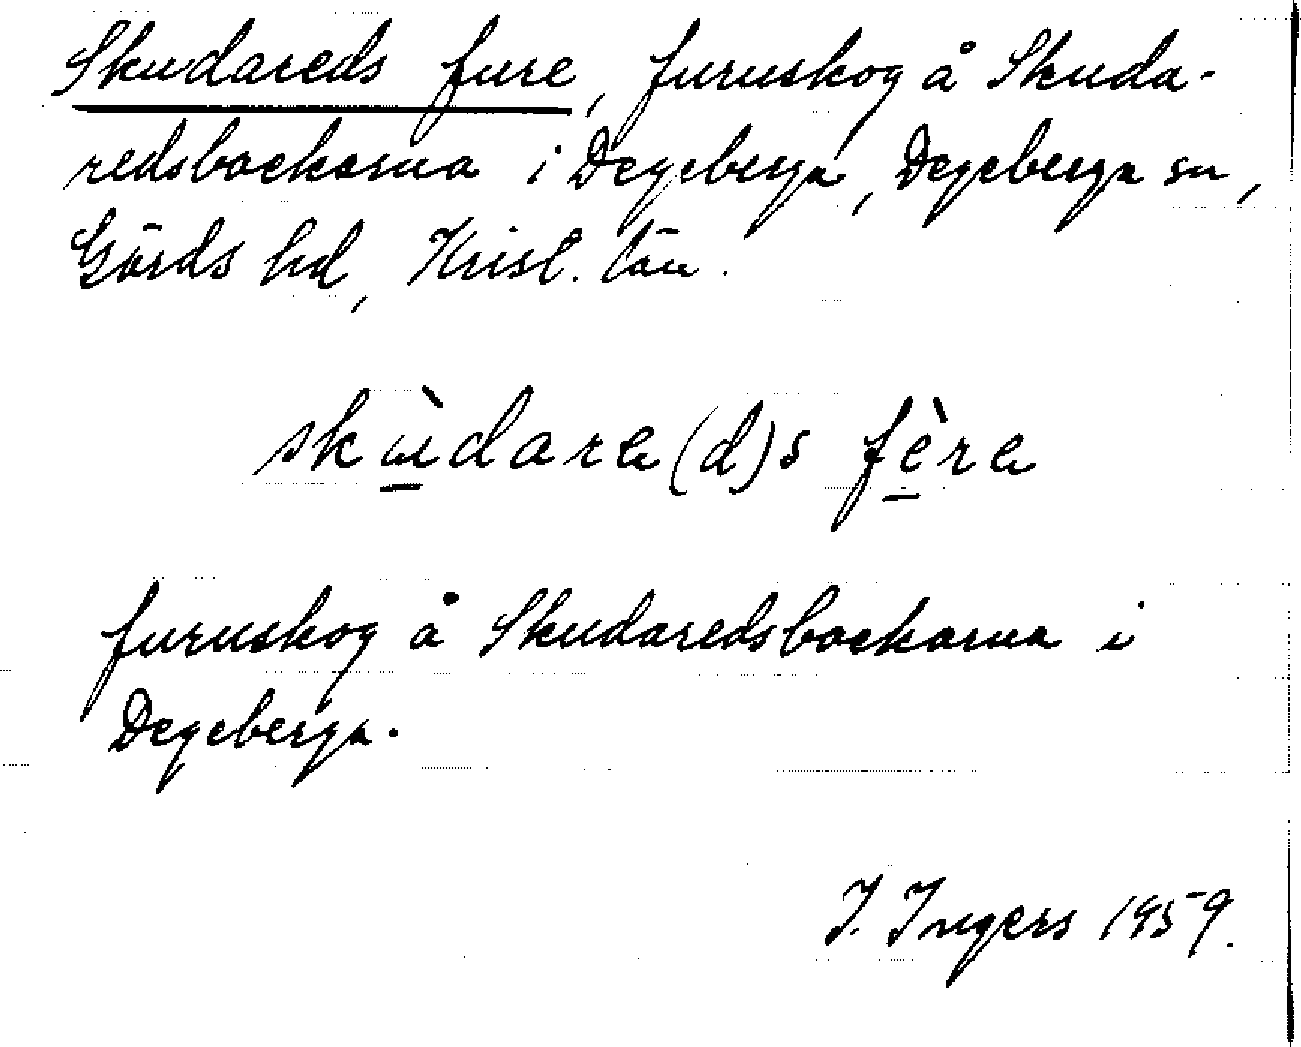 Skudareds fure, furuskog å Skuda-
redsbackarna i Degeberga, Degeberga sn,
Gärds hd, Krist. län.
skùdare(d)s fère
furuskog å Skudaredsbackarna i
Degeberga.
I. Ingers 1959.